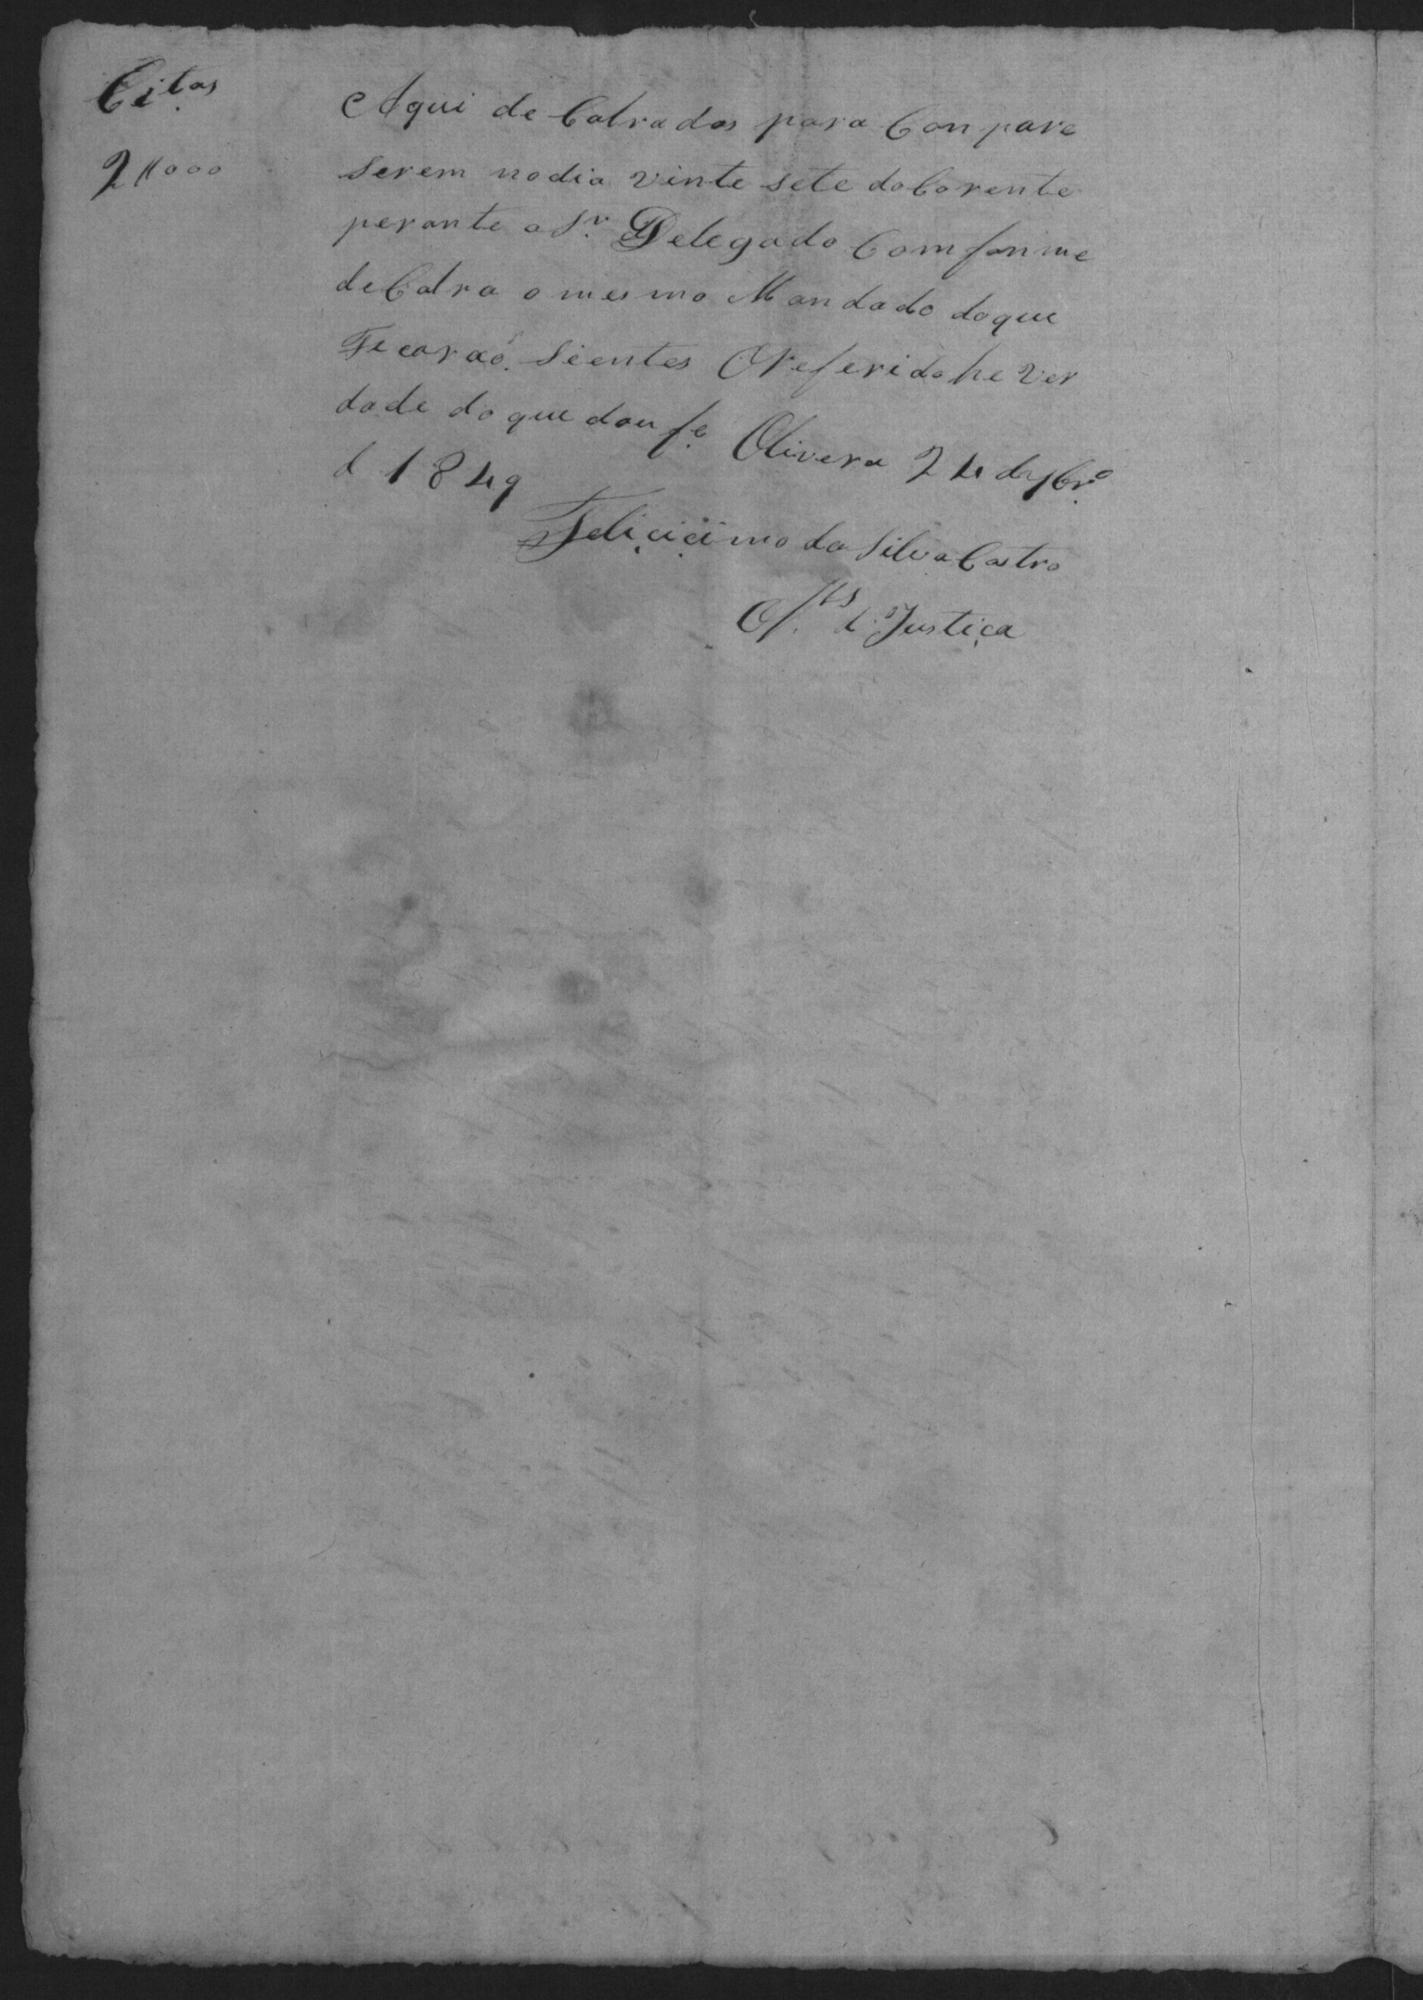 Citas
2$000
Aqui de Calrados para Conpare
Serem nodia vinte sete doCorente
perante o Sr. Delegado Comforme
deCalra o mesmo Mandado doque
Ficaraõ Sientes O Referido he Ver
dade do que dou fe Olivera 24 de
d 1849
Feliciçimo da Silva Castro
Of. d Justiça